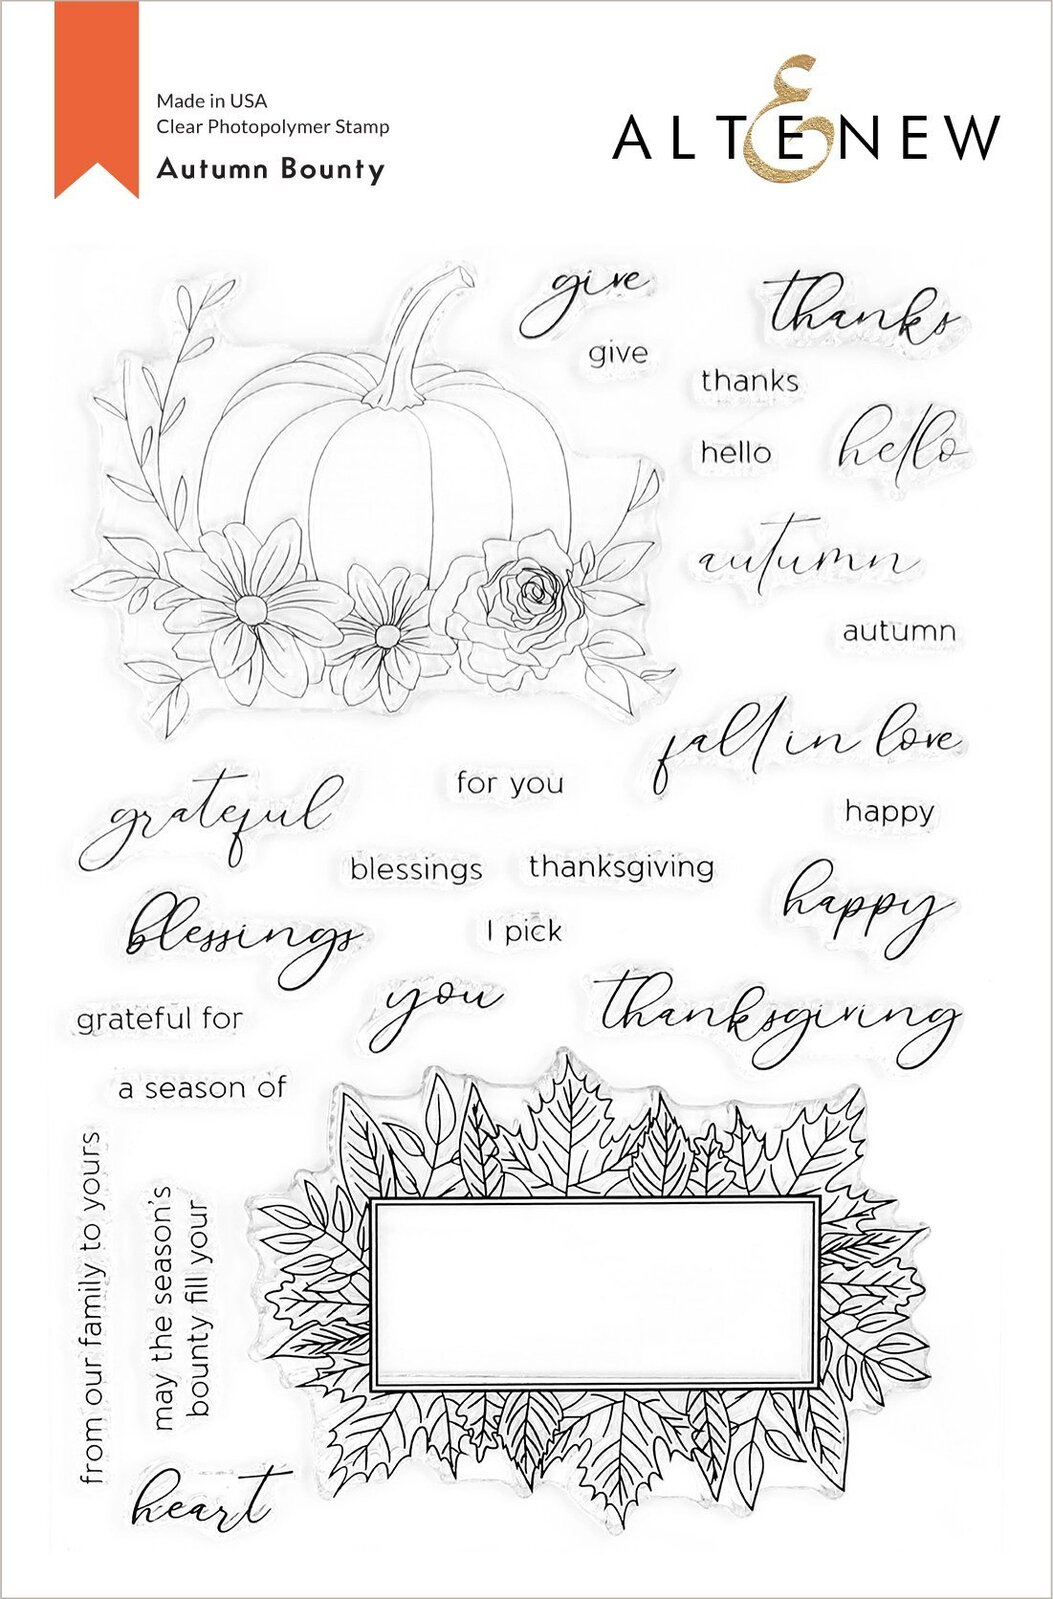 Made in USA
Clear Photopolymer Stamp
Autumn Bounty
ALTENEW
give
thanks
give
thanks
hello
hello
autumn
autumn
fall in love
grateful
for you
happy
blessings
thanksgiving
happy
blessings
I pick
you
thanksgiving
grateful for
a season of
from our family to yours
may the season's
bounty fill your
heart